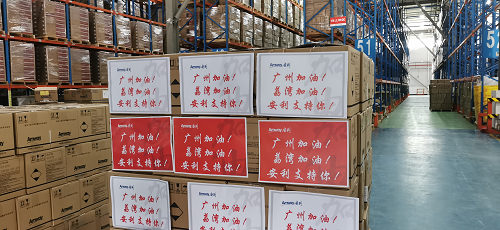 Amway 安利
广州加油!
荔湾加油!
安利支持你!
Amway 安利
广州加油!
荔湾加油!
安利支持你!
Amway 安利
广州加油!
荔湾加油!
安利支持你!
Amway 安利
广州加油!
荔湾加油!
安利支持你!
Amway 安利
广州加油!
荔湾加油!
安利支持你!
Amway 安利
广州加油!
荔湾加油!
安利支持你!
Amway 安利
广州加油!
荔湾加油!
安利支持你!
Amway 安利
广州加油!
荔湾加油!
安利支持你!
Amway 安利
广州加油!
荔湾加油!
安利支持你!
Amway
Amway
Amway